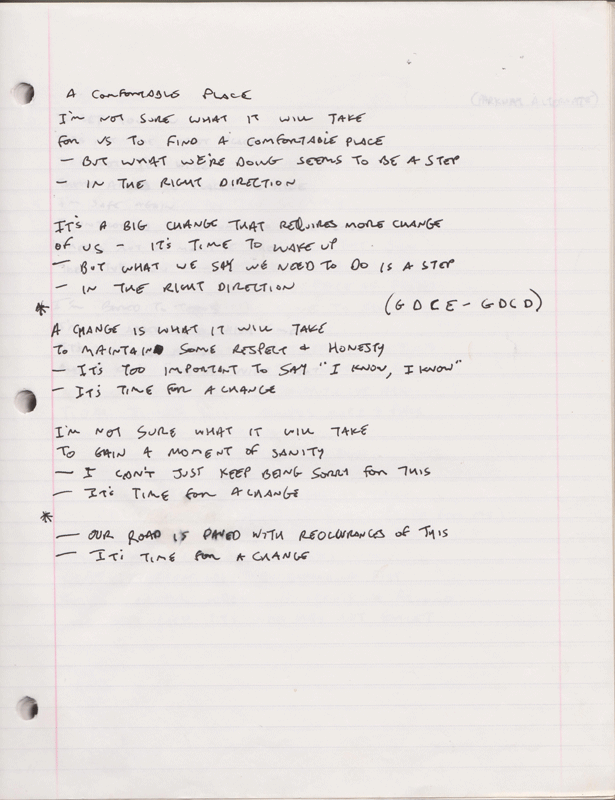 A COMFORTABLE PLACE
I'M NOT SURE WHAT IT WILL TAKE
FOR US TO FIND A COMFORTABLE PLACE
- BUT WHAT WE'RE DOING SEEMS TO BE A STEP
- IN THE RIGHT DIRECTION
IT'S A BIG CHANGE THAT REQUIRES MORE CHANGE
OF US - IT'S TIME TO WAKE UP
- BUT WHAT WE SAY WE NEED TO DO IS A STEP
- IN THE RIGHT DIRECTION
* (G D C E - G D C D)
A CHANGE IS WHAT IT WILL TAKE
TO MAINTAIN SOME RESPECT & HONESTY
- IT'S TOO IMPORTANT TO SAY "I KNOW, I KNOW"
- IT'S TIME FOR A CHANGE
I'M NOT SURE WHAT IT WILL TAKE
TO GAIN A MOMENT OF SANITY
- I CAN'T JUST KEEP BEING SORRY FOR THIS
- IT'S TIME FOR A CHANGE
*
- OUR ROAD IS PAVED WITH REOCCURANCES OF THIS
- IT'S TIME FOR A CHANGE